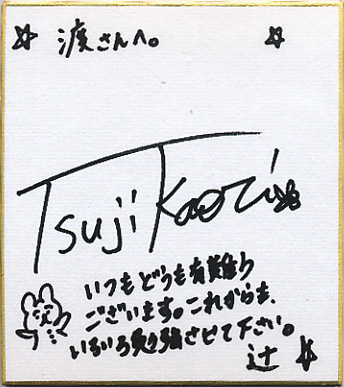 渡さんへ。
Tsuji Kaori
いつもどうも有難う
ございます。これからも、
いろいろ勉強させて下さい。
辻